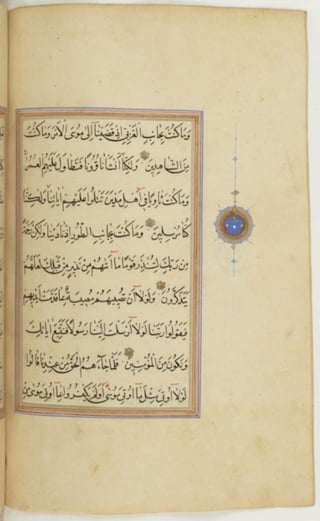 وَمَا كُنْتَ بِجَانِبِ الْغَرْبِيِّ اِذْ قَضَيْنَا اِلٰى مُوسَى الْاَمْرَ وَمَا كُنْتَ
مِنَ الشَّاهِدِينَ وَلٰكِنَّا اَنْشَأْنَا قُرُونًا فَتَطَاوَلَ عَلَيْهِمُ الْعُمُرُ
وَمَا كُنْتَ ثَاوِيًا فِي اَهْلِ مَدْيَنَ تَتْلُوا عَلَيْهِمْ اٰيَاتِنَا وَلٰكِنَّا
كُنَّا مُرْسِلِينَ وَمَا كُنْتَ بِجَانِبِ الطُّورِ اِذْ نَادَيْنَا وَلٰكِنْ رَحْمَةً
مِنْ رَبِّكَ لِتُنْذِرَ قَوْمًا مَا اَتٰيهُمْ مِنْ نَذِيرٍ مِنْ قَبْلِكَ لَعَلَّهُمْ
يَتَذَكَّرُونَ وَلَوْلَا اَنْ تُصِيبَهُمْ مُصِيبَةٌ بِمَا قَدَّمَتْ اَيْدِيهِمْ
فَيَقُولُوا رَبَّنَا لَوْلَا اَرْسَلْتَ اِلَيْنَا رَسُولًا فَنَتَّبِعَ اٰيَاتِكَ
وَنَكُونَ مِنَ الْمُؤْمِنِينَ فَلَمَّا جَاءَهُمُ الْحَقُّ مِنْ عِنْدِنَا قَالُوا
لَوْلَا اُوتِيَ مِثْلَ مَا اُوتِيَ مُوسٰى اَوَلَمْ يَكْفُرُوا بِمَا اُوتِيَ مُوسٰى مِنْ